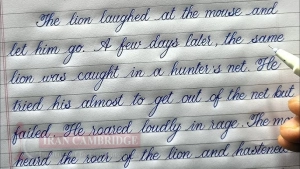 The lion laughed at the mouse and
let him go. A few days later, the same
lion was caught in a hunter's net. He
tried his almost to get out of the net but
failed. He roared loudly in rage. The mo
IRAN CAMBRIDGE
heard the roar of the lion and hastened